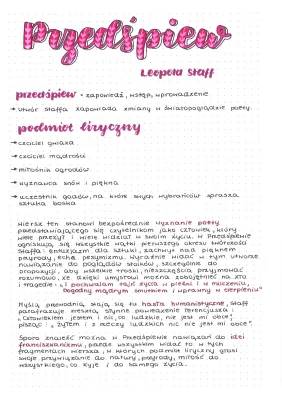 Przedśpiew
Leopold Staff
przedśpiew - zapowiedź, wstęp, wprowadzenie
→ utwór Staffa zapowiada zmiany w światopoglądzie poety
podmiot liryczny
→ czciciel gwiazd
→ czciciel mądrości
→ miłośnik ogrodów
→ wyznawca snów i piękna
→ uczestnik godów, na które swych wybrańców sprasza
sztuka boska
Wiersz ten stanowi bezpośrednie wyznanie poety
przedstawiającego się czytelnikom jako człowiek, który
wiele przeżył i wiele widział w swoim życiu. W Przedśpiewie
ogniskują się wszystkie wątki pierwszego okresu twórczości
Staffa: entuzjazm dla sztuki, zachwyt nad pięknem
przyrody, echa pesymizmu. Wyraźnie widać w tym utworze
nawiązanie do poglądów stoików, szczególnie do
propozycji, aby wszelkie troski, nieszczęścia, przyjmować
rozumowo, że dzięki umysłowi można zobojętnieć na zło
i tragedie: „I pochwalam tajń życia w pieśni i w milczeniu,
Pogodny mądrym smutkiem i wprawny w cierpieniu"
Myślą przewodnią stają się tu hasła humanistyczne, Staff
parafrazuje zresztą słynne powiedzenie Terencjusza:
„Człowiekiem jestem i nic, co ludzkie, nie jest mi obce",
pisząc: „Żyłem i z rzeczy ludzkich nic nie jest mi obce".
Sporo znaleźć można w Przedśpiewie nawiązań do idei
franciszkanizmu, przede wszystkim widać to w tych
fragmentach wiersza, w których podmiot liryczny głosi
swoje przywiązanie do natury, przyrody, miłość do
wszystkiego, co żyje / do samego życia.